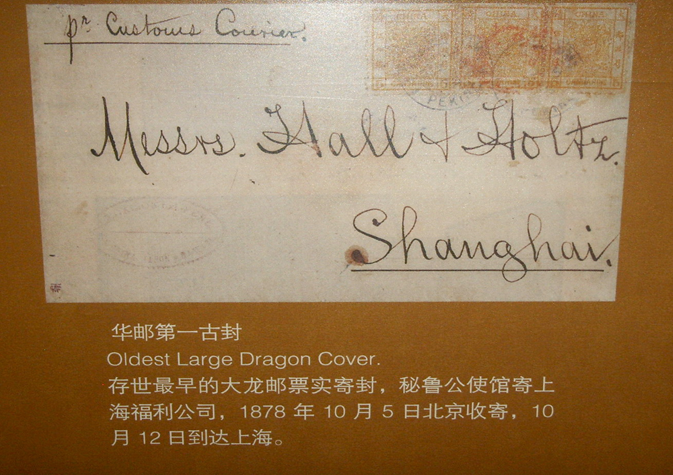 pr Customs Courier.
CHINA CHINA CHINA
PEKIN
Messrs. Hall & Holtz.
Shanghai.
华邮第一古封
Oldest Large Dragon Cover.
存世最早的大龙邮票实寄封，秘鲁公使馆寄上
海福利公司，1878 年 10 月 5 日北京收寄，10
月 12 日到达上海。